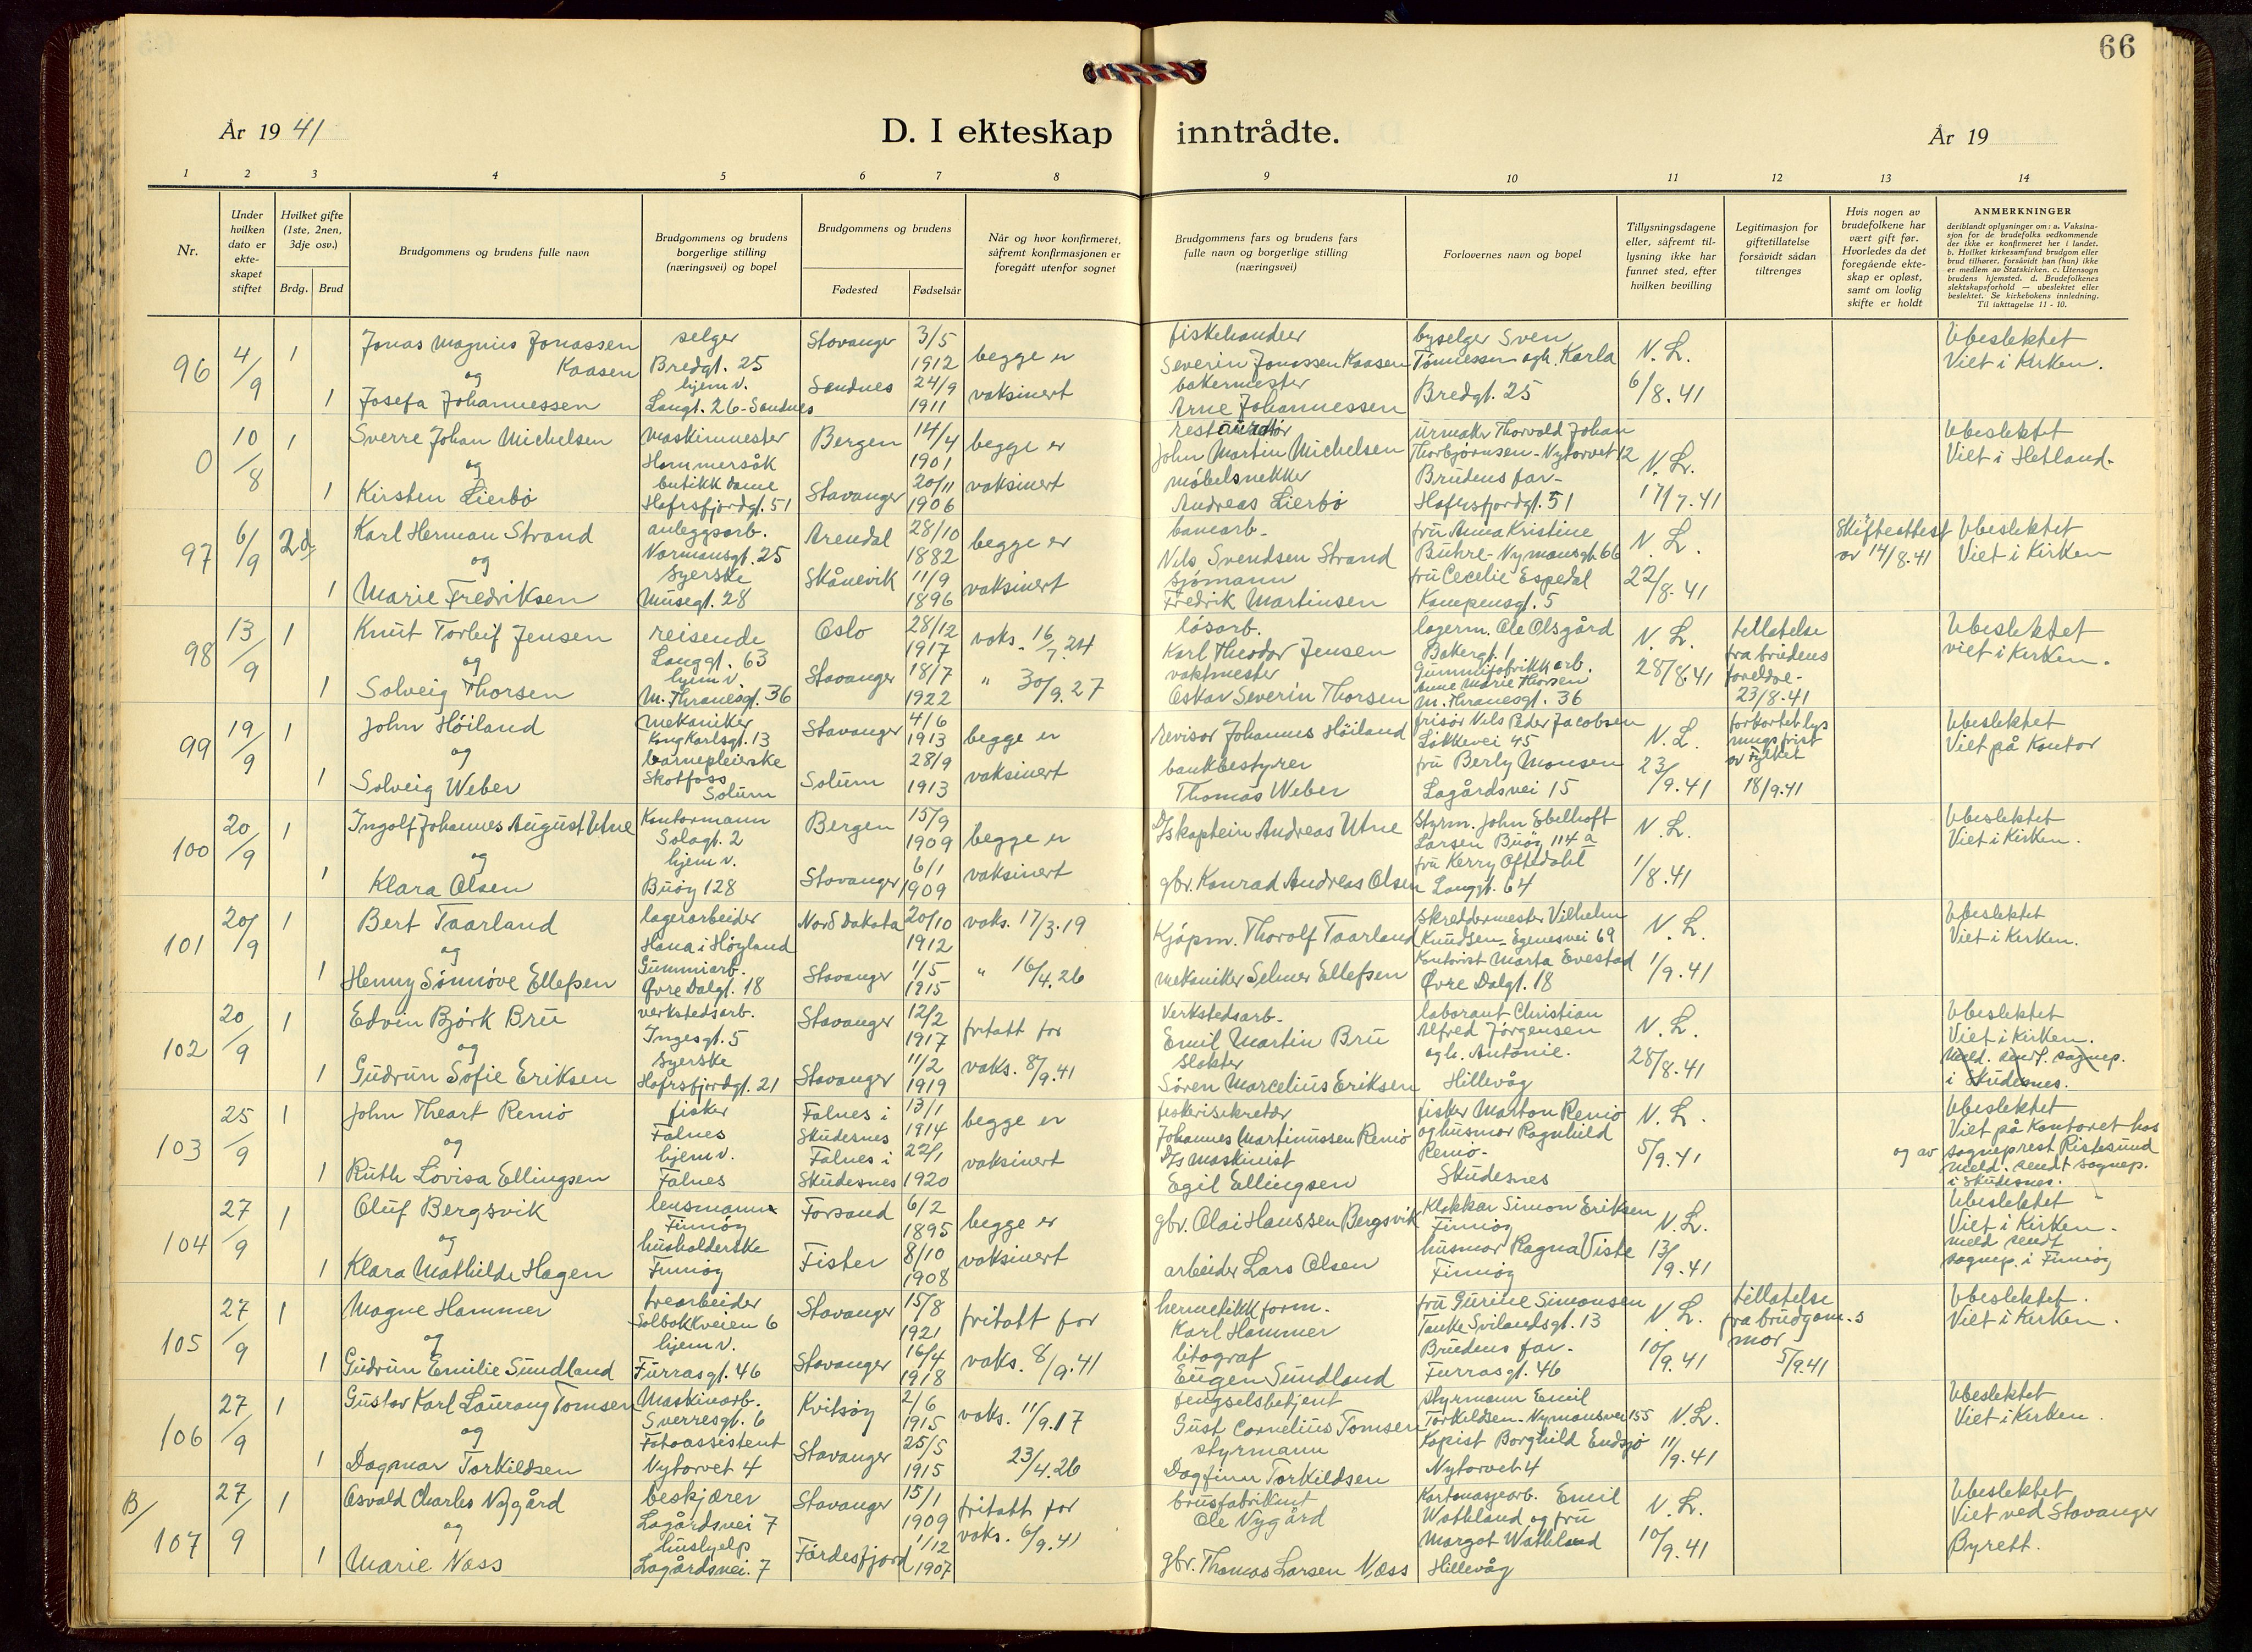 66
År 19 41
D. I ekteskap inntrådte.
År 19
1 2 3 4 5 6 7 8 9 10 11 12 13 14
Nr.
Under hvilken dato er ekteskapet stiftet
Hvilket gifte (1ste, 2nen, 3dje osv.)
Brdg. Brud
Brudgommens og brudens fulle navn
Brudgommens og brudens borgerlige stilling (næringsvei) og bopel
Brudgommens og brudens
Fødested Fødselsår
Når og hvor konfirmeret, såfremt konfirmasjonen er foregått utenfor sognet
Brudgommens fars og brudens fars fulle navn og borgerlige stilling (næringsvei)
Forlovernes navn og bopel
Tillysningsdagene eller, såfremt tillysning ikke har funnet sted, efter hvilken bevilling
Legitimasjon for giftetillatelse forsåvidt sådan tiltrenges
Hvis nogen av brudefolkene har vært gift før. Hvorledes da det foregående ekteskap er opløst, samt om lovlig skifte er holdt
ANMERKNINGER
deriblandt oplysninger om: a. Vaksinasjon for de brudefolks vedkommende der ikke er konfirmeret her i landet. b. Hvilket kirkesamfund brudgom eller brud tilhører, forsåvidt han (hun) ikke er medlem av Statskirken. c. Utensogn brudens hjemsted. d. Brudefolkenes slektskapsforhold — ubeslektet eller beslektet. Se kirkebokens innledning. Til iakttagelse 11 - 10.
96 4/9 1 Jonas Magnus Jonassen Kaasen selger Bredgt. 25 Stavanger 3/5 1912 begge er fiskehandler Severin Jonassen Kaasen byselger Sven Tønnessen og h. Karla N. L. Ubeslektet Viet i Kirken.
og
1 Josefa Johannessen hjemv. Langt. 26 - Sandnes Sandnes 24/9 1911 vaksinert bakermester Arne Johannessen Bredgt. 25 6/8.41
0 10/8 1 Sverre Johan Michelsen Maskinmester Hommersåk Bergen 14/4 1901 begge er restauratør John Martin Michelsen urmaker Thorvald Johan Thorbjørnsen - Nytorvet 12 N. L. Ubeslektet Viet i Hetland.
og
1 Kirsten Lierbø butikkdame Hafrsfjordgt. 51 Stavanger 20/11 1906 vaksinert møbelsnekker Andreas Lierbø Brudens far - Hafrsfjordgt. 51 17/7.41
97 6/9 2d Karl Herman Strand anleggsarb. Normansgt. 25 Arendal 28/10 1882 begge er banearb. Nils Svendsen Strand fru Anna Kristine Buhre - Nymansgt. 66 N. L. Skifteattest av 14/8.41 Ubeslektet Viet i Kirken
og
1 Marie Fredriksen syerske Musegt. 28 Skånevik 11/9 1896 vaksinert sjømann Fredrik Martinsen fru Cecelie Espedal Kampensgt. 5 22/8.41
98 13/9 1 Knut Torleif Jensen reisende Langgt. 63 Oslo 28/12 1917 vaks. 16/7.24 løsarb. Karl Theodor Jensen lagerm. Ole Olsgård Bakergt. 1 N. L. tillatelse fra brudens foreldre - 23/8.41 Ubeslektet viet i Kirken.
og
1 Solveig Thorsen hjemv. M. Thranesgt. 36 Stavanger 18/7 1922 " 30/9.27 vaktmester Oskar Severin Thorsen Gummifabrikkarb. Anne Marie Thorsen M. Thranesgt. 36 28/8.41
99 19/9 1 John Høiland mekaniker Kong Karlsgt. 13 Stavanger 4/6 1913 begge er revisor Johannes Høiland frisør Nils Peder Jacobsen Løkkevei 45 N. L. forkortet lysningsfrist av Fylket 18/9.41 Ubeslektet Viet på Kontor
og
1 Solveig Weber barnepleierske Skotfoss Solum Solum 28/9 1913 vaksinert bankbestyrer Thomas Weber fru Berly Monsen Lagårdsvei 15 23/9.41
100 20/9 1 Ingolf Johannes August Utne Kontormann Solagt. 2 Bergen 15/9 1909 begge er D/s kaptein Andreas Utne Styrm. John Ebelhoft Larsen Buøy 114 a N. L. Ubeslektet Viet i Kirken.
og
1 Klara Olsen hjem v. Buøy 128 Stavanger 6/1 1909 vaksinert gbr. Konrad Andreas Olsen fru Kerry Oftedahl Langgt. 64 1/8.41
101 20/9 1 Bert Taarland lagerarbeider Hana i Høyland Nord Dakota 20/10 1912 vaks. 17/3.19 Kjøpm. Thorolf Taarland Skreddermester Vilhelm Knudsen - Egenesvei 69 N. L. Ubeslektet Viet i Kirken.
og
1 Henny Sønnøve Ellefsen Gummiarb. Øvre Dalgt. 18 Stavanger 1/5 1915 " 16/4.26 mekaniker Selmer Ellefsen Kontorist Marta Evestad Øvre Dalgt. 18 1/9.41
102 20/9 1 Edvin Bjørk Bru verkstedsarb. Ingesgt. 5 Stavanger 12/2 1917 fritatt for Verkstedsarb. Emil Martin Bru laborant Christian Alfred Jørgensen N. L. Ubeslektet Viet i Kirken.
og
1 Gudrun Sofie Eriksen syerske Hafrsfjordgt. 21 Stavanger 11/2 1919 vaks. 8/9.41 slakter Søren Marcelius Eriksen og h. Antonie. Hillevåg 28/8.41 Meld. sendt. sognep. i Skudesnes.
103 25/9 1 John Theart Remiø fisker Falnes Falnes i Skudesnes 13/1 1914 begge er fiskerisekretær Johannes Martinussen Remiø fisker Marton Remiø og husmor Ragnhild N. L. Ubeslektet Viet på Kontoret hos
og
1 Ruth Lovisa Ellingsen hjemv. Falnes Falnes i Skudesnes 22/1 1920 vaksinert D/s Maskinist Egil Ellingsen Remiø - Skudesnes 5/9.41 og av sogneprest Ristesund meld. sendt sognep. i Skudesnes.
104 27/9 1 Oluf Bergsvik lensmann Finnøy Forsand 6/2 1895 begge er gbr. Olai Hanssen Bergsvik Klokkar Simon Eriksen Finnøy N. L. Ubeslektet Viet i Kirken.
og
1 Klara Mathilde Hagen husholderske Finnøy Fister 8/10 1908 vaksinert arbeider Lars Olsen husmor Ragna Viste Finnøy 13/9.41 meld sendt sognep. i Finnøy
105 27/9 1 Magne Hammer trearbeider Solbakkveien 6 Stavanger 15/8 1921 fritatt for hermetikkform. Karl Hammer fru Gurine Simonsen Tanke Svilandsgt. 13 N. L. tillatelse fra brudgom.s mor 5/9.41 Ubeslektet. Viet i Kirken.
og
1 Gudrun Emilie Sundland hjem v. Furrasgt. 46 Stavanger 16/4 1918 vaks. 8/9.41 litograf Eugen Sundland Brudens far. Furrasgt. 46 10/9.41
106 27/9 1 Gustav Karl Laurang Tomsen Maskinarb. Sverresgt. 6 Kvitsøy 2/6 1915 vaks. 11/9.17 fengselsbetjent Gust Cornelius Tomsen styrmann Emil Torkildsen - Nymansvei 155 N. L. Ubeslektet Viet i Kirken.
og
1 Dagmar Torkildsen Fotoassistent Nytorvet 4 Stavanger 25/5 1915 23/4.26 styrmann Dagfinn Torkildsen Kopist Borghild Endsjø Nytorvet 4 11/9.41
B/ 107 27/9 1 Osvald Charles Nygård beskjærer Lagårdsvei 7 Stavanger 15/1 1909 fritatt for brusfabrikant Ole Nygård Kartonasjearb. Emil Wathland og fru N. L. Ubeslektet Viet ved Stavanger
og
1 Marie Næss hushjelp Lagårdsvei. 7 Førdesfjord 11/12 1907 vaks. 6/9.41 gbr. Thomas Larsen Næss Margot Wathland Hillevåg 10/9.41 Byrett.